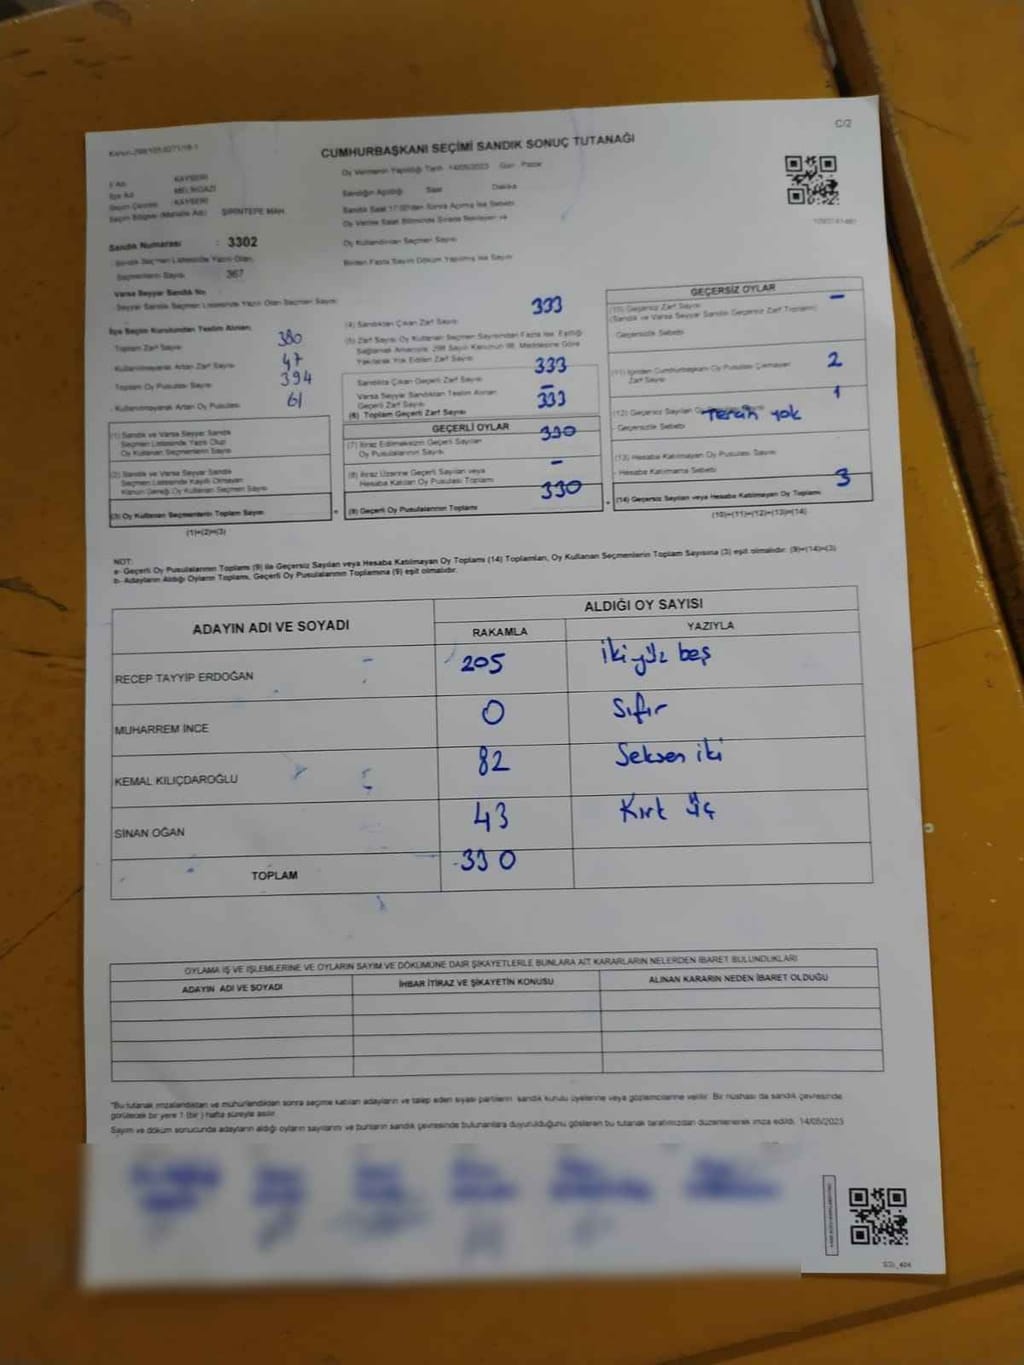 C/2
CUMHURBAŞKANI SEÇİMİ SANDIK SONUÇ TUTANAĞI
Oy Vermenin Yapıldığı Tarih 14/05/2023 Gün Pazar
İl Adı KAYSERİ
İlçe Adı MELİKGAZİ
Seçim Çevresi KAYSERİ
Seçim Bölgesi (Mahalle Adı) ŞİRİNTEPE MAH.
Sandığın Açıldığı Saat Dakika
Sandık Saat 17:00'den Sonra Açılmış İse Sebebi
Sandık Numarası : 3302
Sandık Seçmen Listesinde Yazılı Olan
Seçmenlerin Sayısı 367
Oy Kullandırılan Seçmen Sayısı
Birden Fazla Sayım Döküm Yapılmış İse Sayısı
Varsa Seyyar Sandık No
Seyyar Sandık Seçmen Listesinde Yazılı Olan Seçmen Sayısı
İlçe Seçim Kurulundan Teslim Alınan:
Toplam Zarf Sayısı 380
Kullanılmayarak Artan Zarf Sayısı 47
Toplam Oy Pusulası Sayısı 394
- Kullanılmayarak Artan Oy Pusulası 61
(1) Sandık ve Varsa Seyyar Sandık
Seçmen Listesinde Yazılı Olup
Oy Kullanan Seçmenlerin Sayısı
(2) Sandık ve Varsa Seyyar Sandık
Seçmen Listesinde Kayıtlı Olmayan
Kanun Gereği Oy Kullanan Seçmen Sayısı
(3) Oy Kullanan Seçmenlerin Toplam Sayısı
(1)+(2)=(3)
(4) Sandıktan Çıkan Zarf Sayısı 333
(5) Zarf Sayısı Oy Kullanan Seçmen Sayısından Fazla İse, Eşitliği
Sağlamak Amacıyla, 298 Sayılı Kanunun 98. Maddesine Göre
Yakılarak Yok Edilen Zarf Sayısı
Sandıkta Çıkan Geçerli Zarf Sayısı 333
Varsa Seyyar Sandıktan Teslim Alınan
Geçerli Zarf Sayısı –
(6) Toplam Geçerli Zarf Sayısı 333
GEÇERLİ OYLAR
(7) İtiraz Edilmeksizin Geçerli Sayılan
Oy Pusulalarının Sayısı 330
(8) İtiraz Üzerine Geçerli Sayılan veya
Hesaba Katılan Oy Pusulası Toplamı –
(9) Geçerli Oy Pusulalarının Toplamı 330
GEÇERSİZ OYLAR
(10) Geçersiz Zarf Sayısı –
(Sandık ve Varsa Seyyar Sandık Geçersiz Zarf Toplamı)
Geçersizlik Sebebi
(11) İçinden Cumhurbaşkanı Oy Pusulası Çıkmayan
Zarf Sayısı 2
(12) Geçersiz Sayılan Oy 1
Geçersizlik Sebebi Tercih yok
(13) Hesaba Katılmayan Oy Pusulası Sayısı
- Hesaba Katılmama Sebebi
(14) Geçersiz Sayılan veya Hesaba Katılmayan Oy Toplamı 3
(10)+(11)+(12)+(13)=(14)
NOT:
a- Geçerli Oy Pusulalarının Toplamı (9) ile Geçersiz Sayılan veya Hesaba Katılmayan Oy Toplamı (14) Toplamları, Oy Kullanan Seçmenlerin Toplam Sayısına (3) eşit olmalıdır. (9)+(14)=(3)
b- Adayların Aldığı Oyların Toplamı, Geçerli Oy Pusulalarının Toplamına (9) eşit olmalıdır.
ADAYIN ADI VE SOYADI
ALDIĞI OY SAYISI
RAKAMLA YAZIYLA
RECEP TAYYİP ERDOĞAN 205 İkiyüz beş
MUHARREM İNCE 0 Sıfır
KEMAL KILIÇDAROĞLU 82 Seksen iki
SİNAN OĞAN 43 Kırk üç
TOPLAM 330
OYLAMA İŞ VE İŞLEMLERİNE VE OYLARIN SAYIM VE DÖKÜMÜNE DAİR ŞİKAYETLERLE BUNLARA AİT KARARLARIN NELERDEN İBARET BULUNDUKLARI
ADAYIN ADI VE SOYADI İHBAR İTİRAZ VE ŞİKAYETİN KONUSU ALINAN KARARIN NEDEN İBARET OLDUĞU
"Bu tutanak imzalandıktan ve mühürlendikten sonra seçime katılan adayların ve talep eden siyasi partilerin sandık kurulu üyelerine veya gözlemcilerine verilir. Bir nüshası da sandık çevresinde
görülecek bir yere 1 (bir) hafta süreyle asılır.
Sayım ve döküm sonucunda adayların aldığı oyların sayılarını ve bunların sandık çevresinde bulunanlara duyurulduğunu gösteren bu tutanak tarafımızdan düzenlenerek imza edildi. 14/05/2023